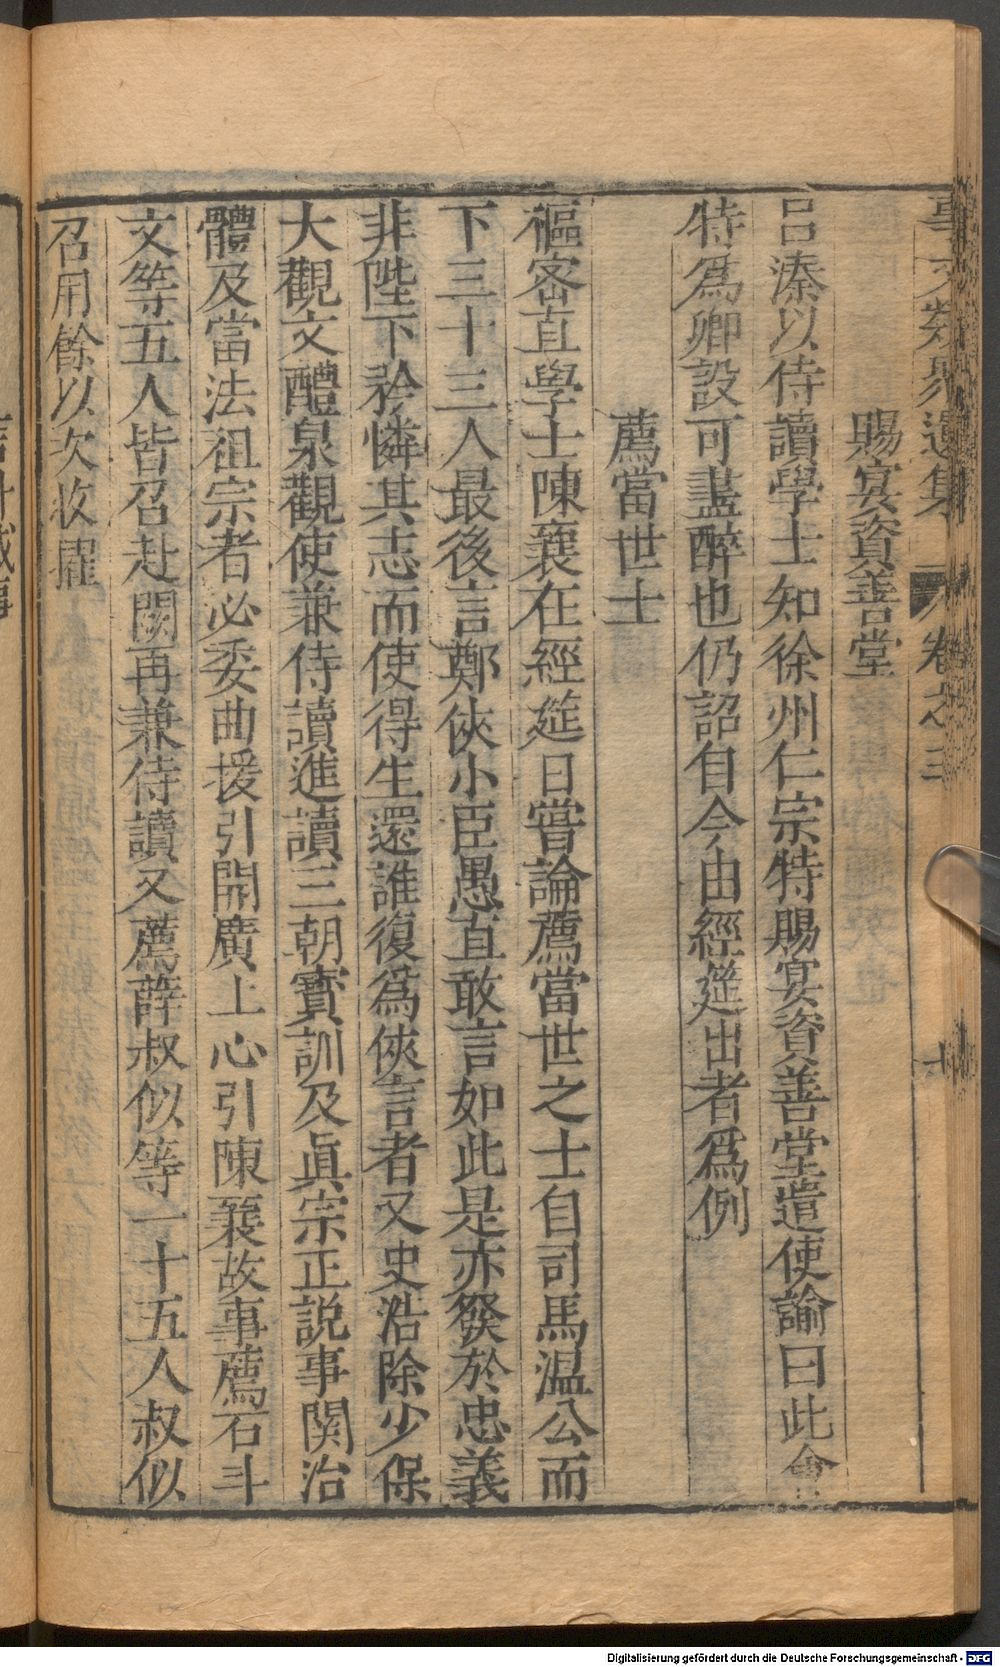 事文類聚遺集 卷之三
賜宴資善堂
呂溱以侍讀學士知徐州仁宗特賜宴資善堂遣使諭曰此會
特爲卿設可盡醉也仍詔自今由經筵出者爲例
薦當世士
樞密直學士陳襄在經筵日嘗論薦當世之士自司馬温公而
下三十三人最後言鄭俠小臣愚直敢言如此是亦發於忠義
非陛下矜憐其志而使得生還誰復爲俠言者又史浩除少保
大觀文醴泉觀使兼侍讀進讀三朝寳訓及眞宗正說事関治
體及當法祖宗者必委曲援引開廣上心引陳襄故事薦石斗
文等五人皆召赴闕再兼侍讀又薦薛叔似等一十五人叔似
召用餘以次收擢
Digitalisierung gefördert durch die Deutsche Forschungsgemeinschaft - DFG